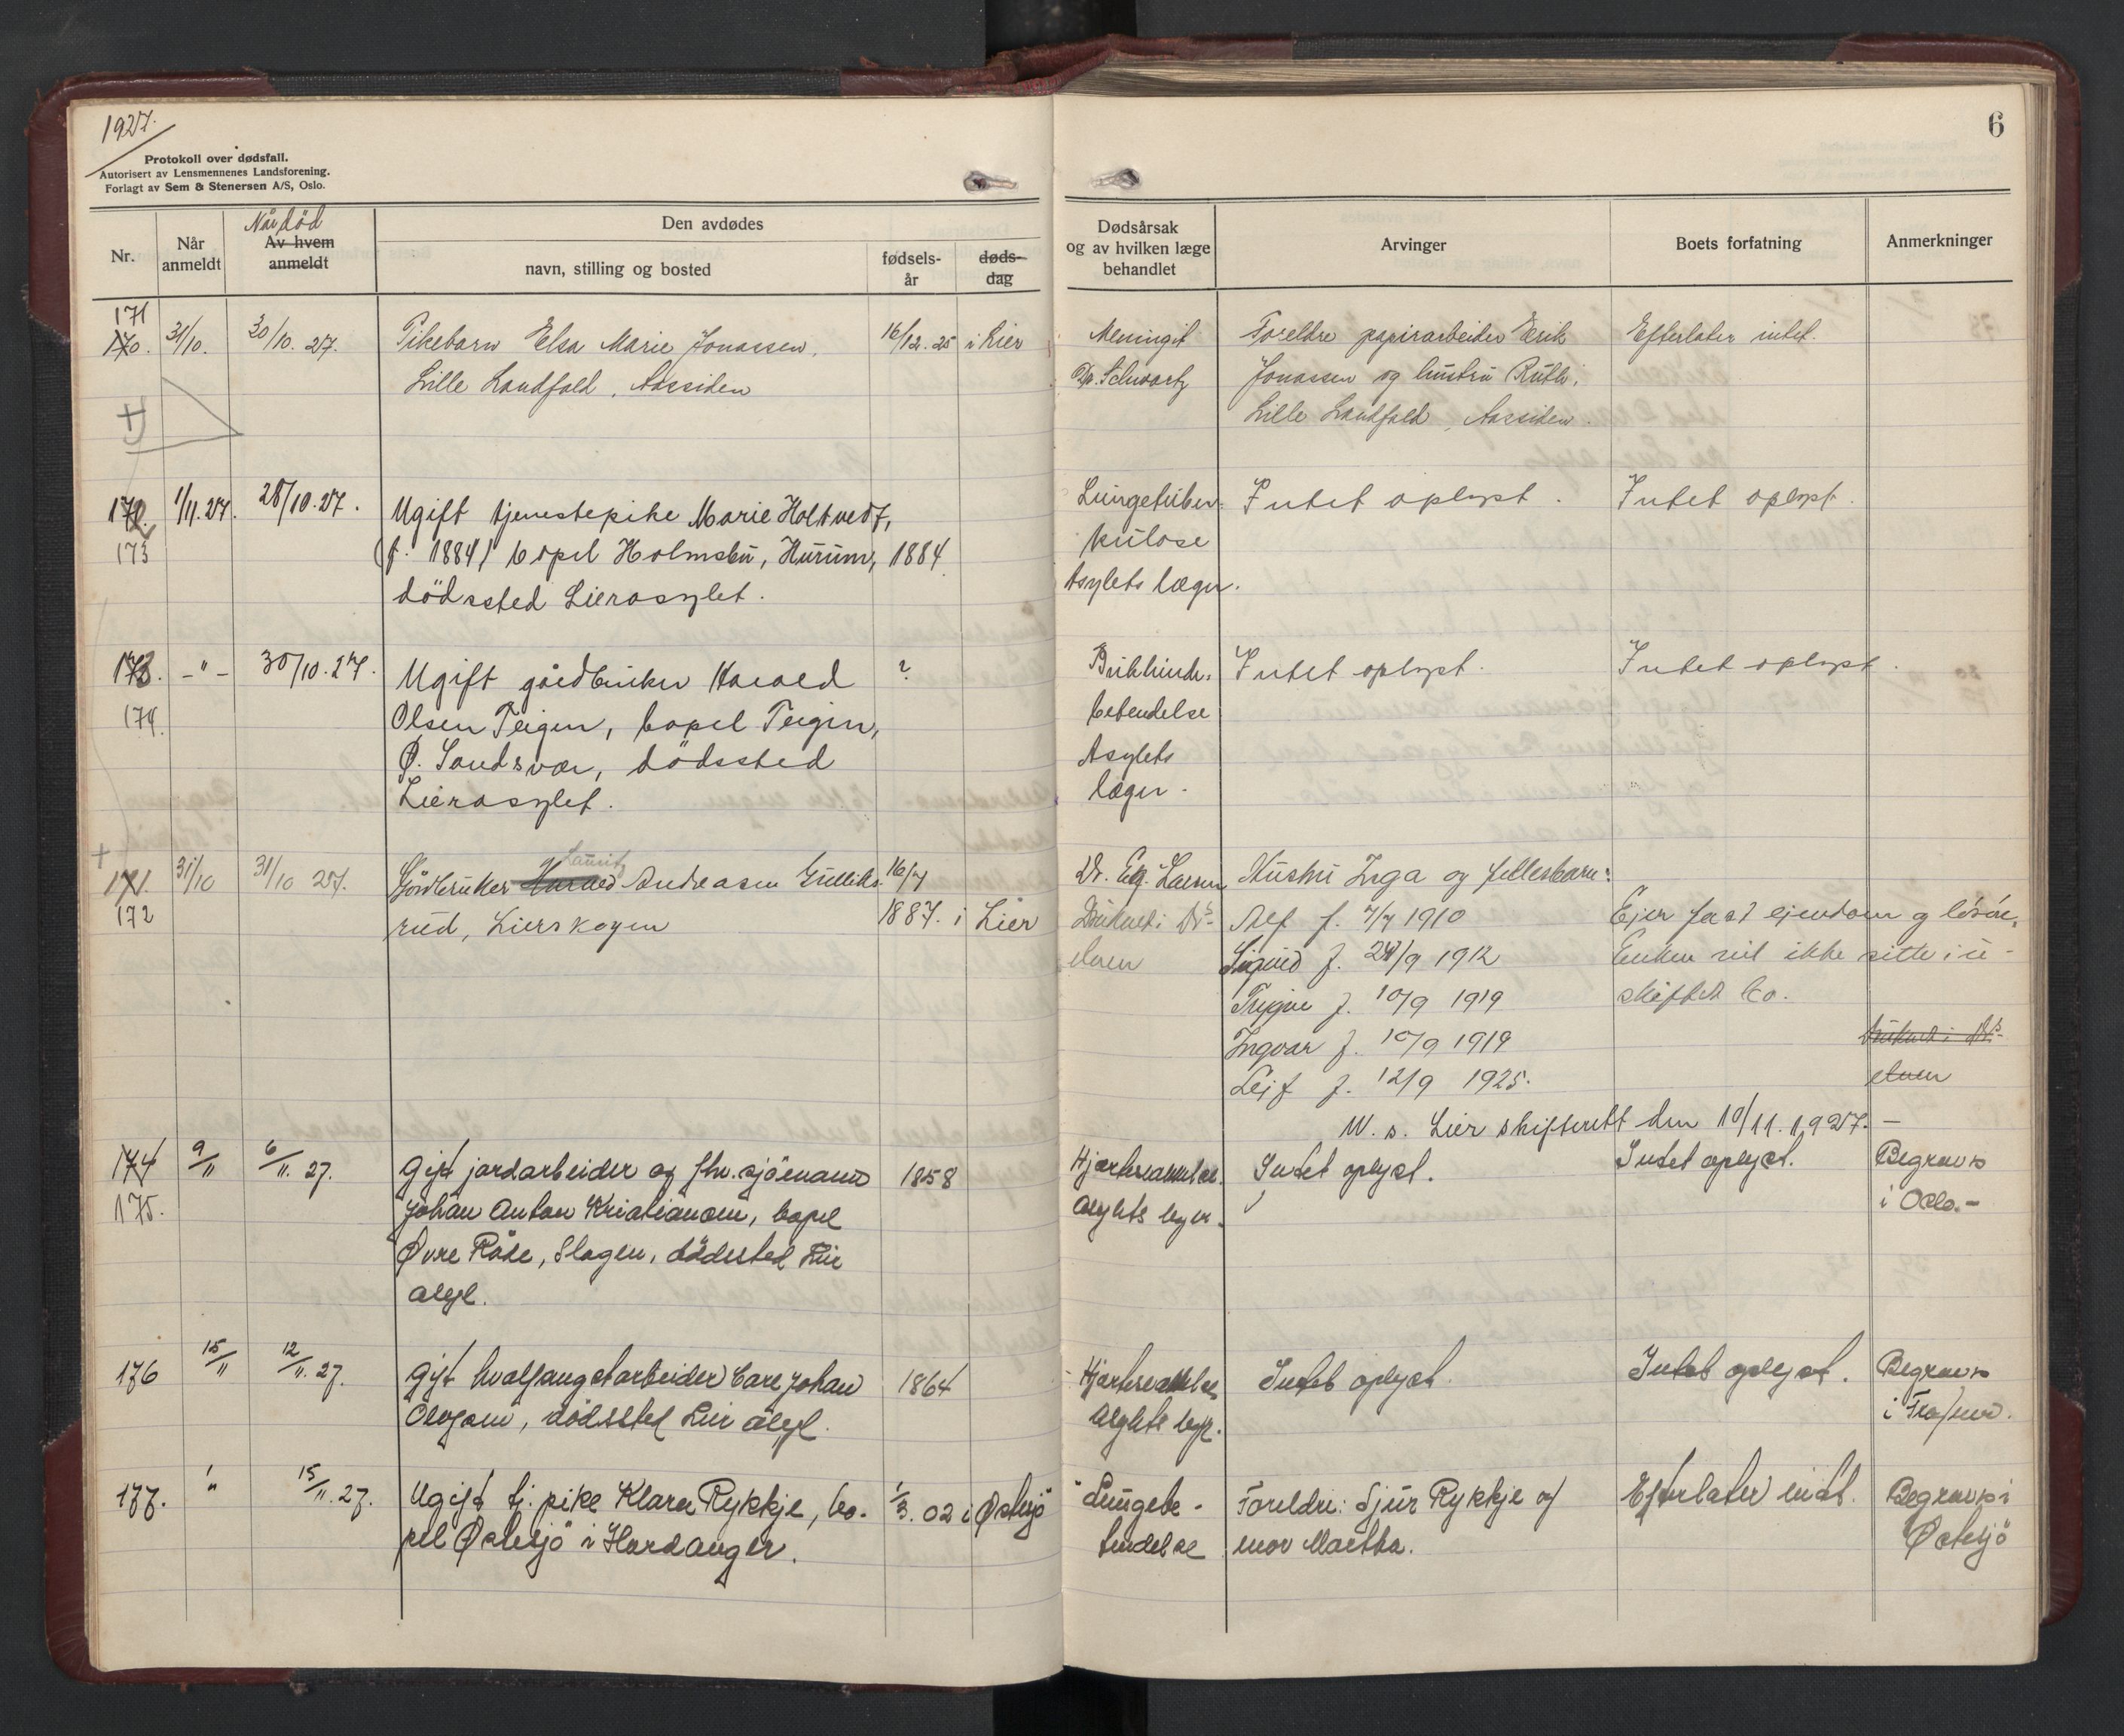 1927.
Protokoll over dødsfall.
Autorisert av Lensmennenes Landsforening.
Forlagt av Sem & Stenersen A/S, Oslo.
6
Nr.
Når anmeldt
Når död
Av hvem anmeldt
Den avdødes
navn, stilling og bosted
fødsels-år
døds-dag
Dødsårsak
og av hvilken læge
behandlet
Arvinger
Boets forfatning
Anmerkninger
171
170. 31/10. 30/10. 27. Pikebarn Elsa Marie Jonassen, 16/12. 25 i Lier Meningit Foreldre papirarbeider Erik Efterlater intet.
Lille Landfald, Aassiden Dr. Schwartz Jonassen og hustru Ruth,
Lille Landfald, Aassiden.
172. 1/11. 27. 28/10. 27. Ugift tjenestepike Marie Holtvedt, Lungetuber- Intet oplyst. Intet oplyst.
173 (f. 1884) bopel Holmsbu, Hurum, 1884 kulose
dödssted Lierasylet. Asylets læger.
173. -"- 30/10. 27. Ugift gårdbruker Harald ? Brikhinde- Intet oplyst. Intet oplyst.
174. Olsen Teigen, bopel Teigen, betendelse
Ø. Sandsvær, dödssted Asylets
Lierasylet. læger.
Lauritz
171. 31/10 31/10 27. Gårdbruker Harald Andreasen Gulliks- 16/7 Dr. Eg. Larsen Hustru Inga og fellesbarn:
172 rud, Lierskogen 1887. i Lier Druknet i Dr.s- Alf f. 7/7 1910 Ejer fast ejendom og lösöre.
elven Sigurd f. 28/9 1912 Enken vil ikke sitte i u-
Trygve f. 10/9 1919 skiftet bo.
Ingvar f. 10/9 1919 Druknet i Dr.s-
Leif f. 12/9 1925. elven
M. s. Lier skifterett den 10/11. 1927. -
174 9/11 6/11. 27. Gift jordarbeider og fhv. sjömann 1858 Hjertelammelse Intet oplyst. Intet oplyst. Begraves
175. Johan Anton Kristiansen, bopel Asylets leger. i Oslo.-
Øvre Råde, Slagen, dödssted Lier
asyl.
176 15/11 12/11. 27. Gift hvalfangstarbeider Carl Johan 1864 Hjertelammelse Intet oplyst. Intet oplyst. Begraves
dödssted Lier asyl. Asylets leger.
177. " 15/11. 27. Ugift tj. pike Klara Rykkje, bo- 1/3. 02 i Østesjö Lungebe- Foreldre: Sjur Rykkje og Efterlater intet. Begraves i
pel Østesjö i Hardanger. tendelse mor Martha. Østesjö